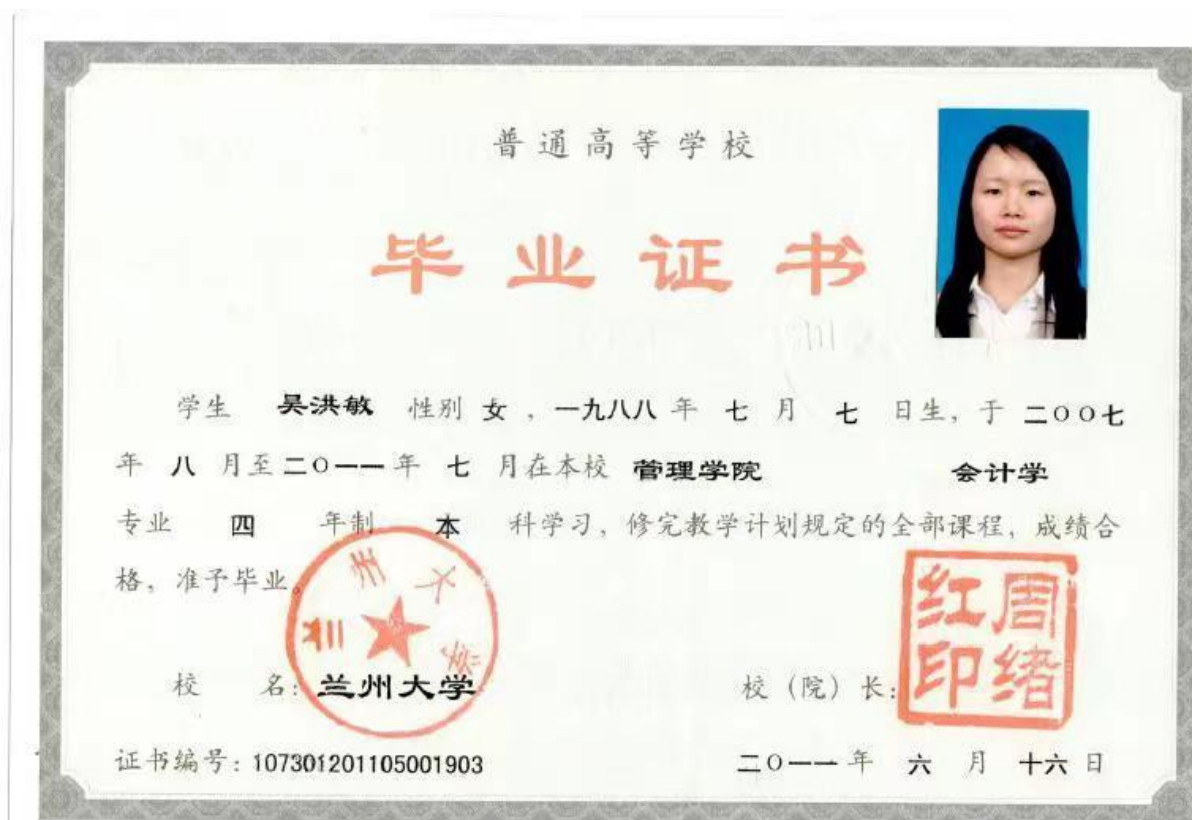 普通高等学校
毕业证书
学生 吴洪敏 性别 女 ，一九八八 年 七 月 七 日生，于 二〇〇七
年 八 月至 二〇一一 年 七 月在本校 管理学院 会计学
专业 四 年制 本 科学习，修完教学计划规定的全部课程，成绩合
格，准予毕业。
兰州大学
周绪红印
校 名：兰州大学 校（院）长：
证书编号：107301201105001903 二〇一一 年 六 月 十六 日